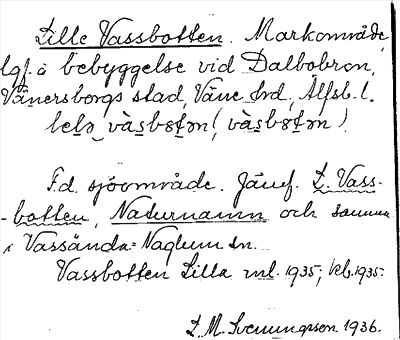 Lille Vassbotten. Markområde,
lgf. o bebyggelse vid Dalbobron,
Vänersborgs stad, Väne hd, Älfsb. l.
lɛlə vàsbɵtən (vàsbɵtən).
F.d. sjöområde. Jämf. L. Vass-
-botten, Naturnamn och samma
i Vassända-Naglum sn.
Vassbotten Lilla ml. 1935; kb. 1935.
L. M. Svenungsson 1936.